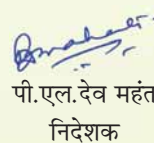 पी.एल.देव महंत
निदेशक